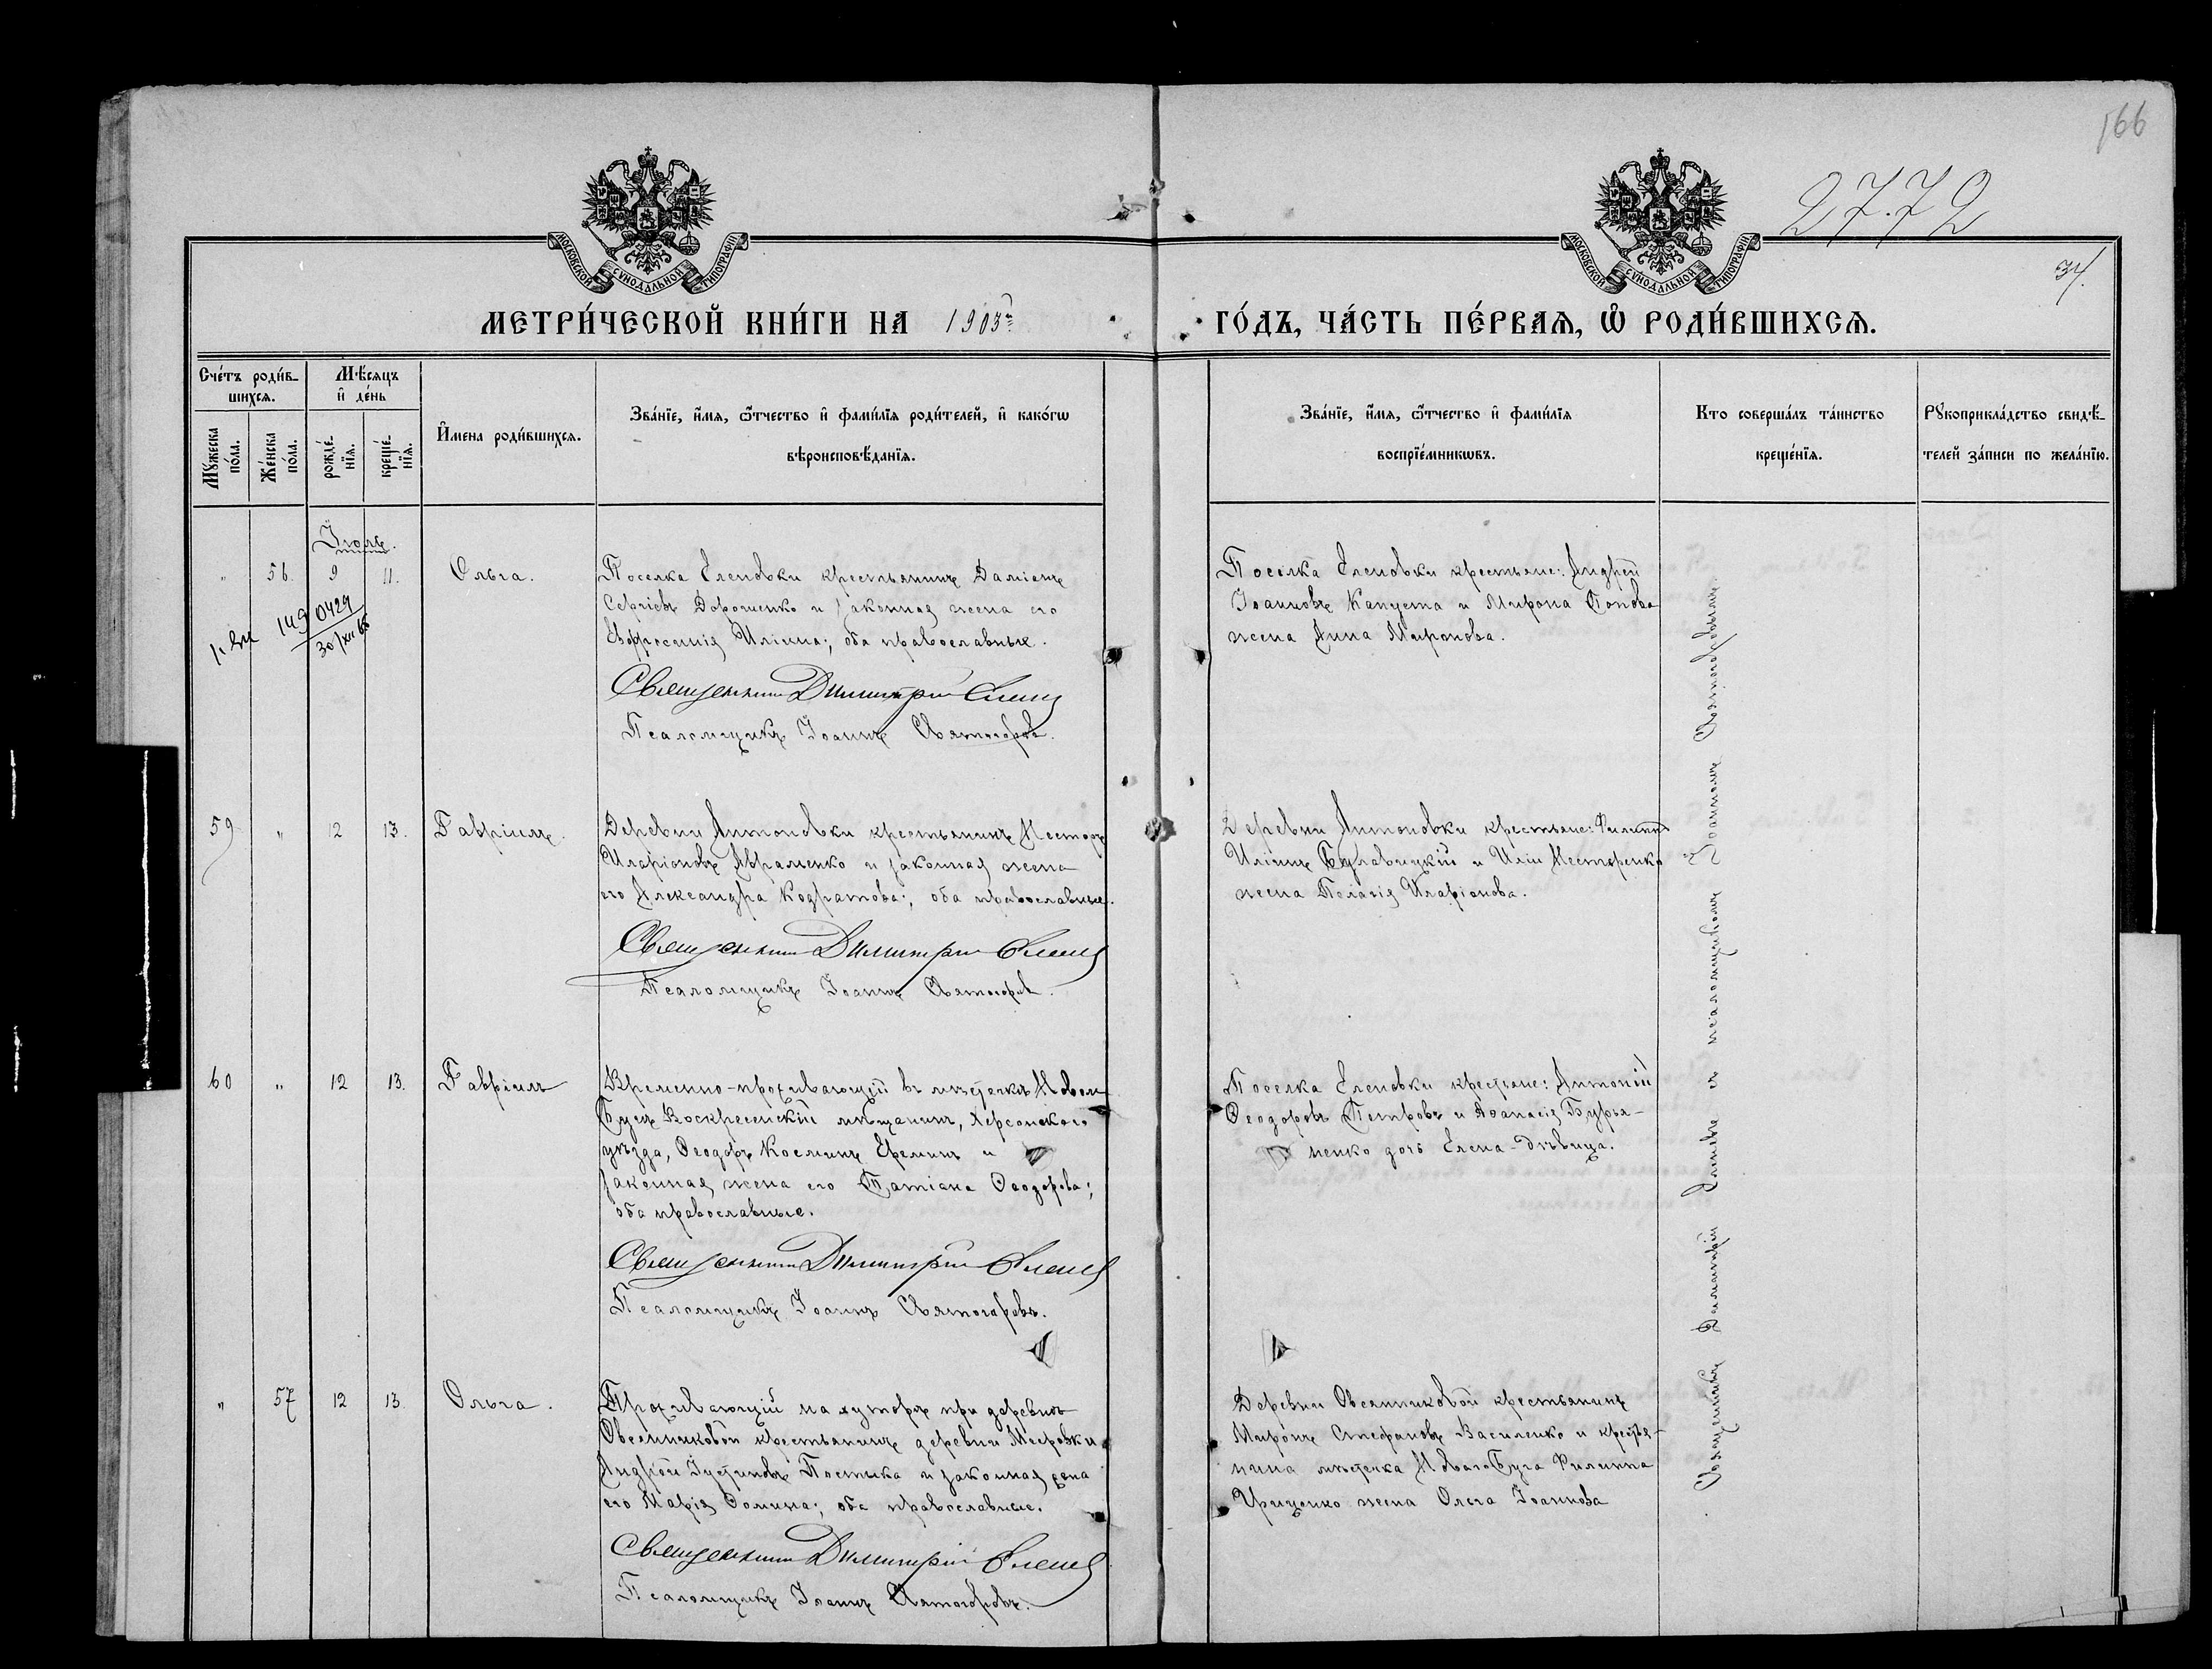 166
2772
34.
МОСКОВСКОЙ СѴНОДАЛЬНОЙ ТИПОГРАФІИ
МОСКОВСКОЙ СѴНОДАЛЬНОЙ ТИПОГРАФІИ
МЕТРИ́ЧЕСКОЙ КНИ́ГИ НА 1903й
ГО́ДЪ, ЧА́СТЬ ПЕ́РВАЯ, Ѡ҆ РОДИ́ВШИХСЯ.
Сче́тъ роди́в-
шихся.
Мꙋ́жеска по́ла.
Же́нска по́ла.
Мѣ́сяцъ
и҆ де́нь
рожде́нїя.
креще́нїя.
И҆мена роди́вшихся.
Зва́нїе, и҆́мя, ѻ҆́тчество и҆ фами́лїя роди́телей, и҆ како́гѡ
вѣроисповѣ́данїя.
Зва́нїе, и҆́мя, ѻ҆́тчество и҆ фами́лїя
воспрїе́мникѡвъ.
Кто соверша́лъ та́инство
креще́нїя.
Рꙋкоприкла́дство свидѣ́-
телей за́писи по жела́нїю.
Іюль.
" 56. 9 11. Ольга.
149 0429
30/XII 66
Поселка Еленовки крестьянинъ Даміанъ
Сергіевъ Дорошенко и законная жена его
Евфросинія Иліина; оба православные.
Священникъ Димитрій
Псаломщикъ Іоаннъ Святогоровъ.
Поселка Еленовки крестьяне: Андрей
Іоанновъ Капуста и Мирона Попова
жена Анна Миронова.
59 " 12 13. Гавріилъ.
Деревни Антоновки крестьянинъ Несторъ
Иларіоновъ Авраменко и законная жена
его Александра Кодратова; оба православные.
Священникъ Димитрій
Псаломщикъ Іоаннъ Святогоровъ.
Деревни Антоновки крестьяне: Филиппъ
Иліинъ Булавицкій и Иліи Нестеренко
жена Пелагія Иларіонова.
60 " 12 13. Гавріилъ
Временно-проживающій въ мѣстечкѣ Новом
Бугѣ Воскресенскій мѣщанинъ, Херсонскаго
уѣзда, Ѳеодоръ Косминъ Ереминъ и
законная жена его Татіана Ѳеодорова;
оба православные.
Священникъ Димитрій
Псаломщикъ Іоаннъ Святогоровъ.
Поселка Еленовки крестьяне: Антоній
Ѳеодоровъ Петровъ и Аѳанасія Бурья-
ненко дочь Елена-дѣвица.
" 57 12 13 Ольга.
Проживающій на хуторѣ при деревнѣ
Овсянниковой крестьянинъ деревни
Андрей Іустиновъ Постика и законная жена
его Марія Ѳомина; оба православные.
Священникъ Димитрій
Псаломщикъ Іоаннъ Святогоровъ.
Деревни Овсянниковой крестьянинъ
Миронъ Стефановъ Василенко и крестья-
нина мѣстечка Новаго Буга Филиппа
Гриценко жена Ольга Іоаннова
Священникъ Димитрій съ псаломщикомъ Іоанномъ Святогоровымъ